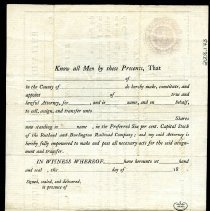 Know all Men by these Presents, That
of
in the County of do hereby make, constitute, and
appoint of true and
lawful Attorney, for and in name, and on behalf,
to sell, assign, and transfer unto
Shares
now standing in name, in the Preferred Six per cent. Capital Stock
of the Rutland and Burlington Railroad Company; and my said Attorney is
hereby fully impowered to make and pass all necessary acts for the said assign-
ment and transfer.
IN WITNESS WHEREOF, have hereunto set hand
and seal this day of 18
Signed, sealed, and delivered,
in presence of